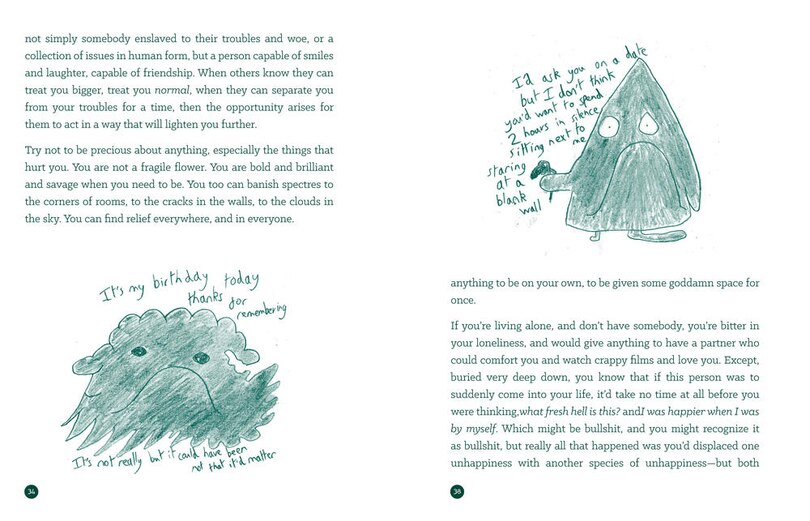 not simply somebody enslaved to their troubles and woe, or a
collection of issues in human form, but a person capable of smiles
and laughter, capable of friendship. When others know they can
treat you bigger, treat you normal, when they can separate you
from your troubles for a time, then the opportunity arises for
them to act in a way that will lighten you further.
Try not to be precious about anything, especially the things that
hurt you. You are not a fragile flower. You are bold and brilliant
and savage when you need to be. You too can banish spectres to
the corners of rooms, to the cracks in the walls, to the clouds in
the sky. You can find relief everywhere, and in everyone.
It's my birthday today
thanks for
remembering
It's not really but it could have been
not that it'd matter
34
I'd ask you on a date
but I don't think
you'd want to spend
2 hours in silence
sitting next to
me
staring
at a
blank
wall
anything to be on your own, to be given some goddamn space for
once.
If you're living alone, and don't have somebody, you're bitter in
your loneliness, and would give anything to have a partner who
could comfort you and watch crappy films and love you. Except,
buried very deep down, you know that if this person was to
suddenly come into your life, it'd take no time at all before you
were thinking,what fresh hell is this? andI was happier when I was
by myself. Which might be bullshit, and you might recognize it
as bullshit, but really all that happened was you'd displaced one
unhappiness with another species of unhappiness—but both
38